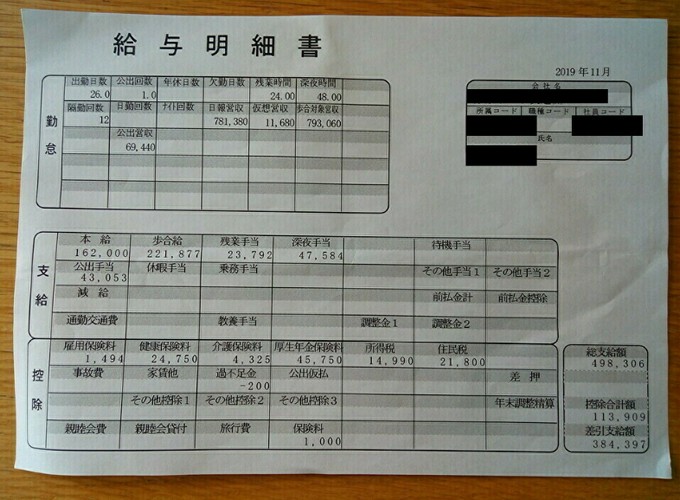 給与明細書
2019年11月
会社名
所属コード 職種コード 社員コード
氏名
勤怠
出勤日数 公出回数 年休日数 欠勤日数 残業時間 深夜時間
26.0 1.0 24.00 48.00
隔勤回数 日勤回数 ナイト回数 日報営収 仮想営収 歩合対象営収
12 781,380 11,680 793,060
公出営収
69,440
支給
本給 歩合給 残業手当 深夜手当 待機手当
162,000 221,877 23,792 47,584
公出手当 休暇手当 乗務手当 その他手当1 その他手当2
43,053
減給 前払金計 前払金控除
通勤交通費 教養手当 調整金1 調整金2
控除
雇用保険料 健康保険料 介護保険料 厚生年金保険料 所得税 住民税
1,494 24,750 4,325 45,750 14,990 21,800
事故費 家賃他 過不足金 公出仮払 差押
-200
その他控除1 その他控除2 その他控除3 年末調整精算
親睦会費 親睦会貸付 旅行費 保険料
1,000
総支給額
498,306
控除合計額
113,909
差引支給額
384,397